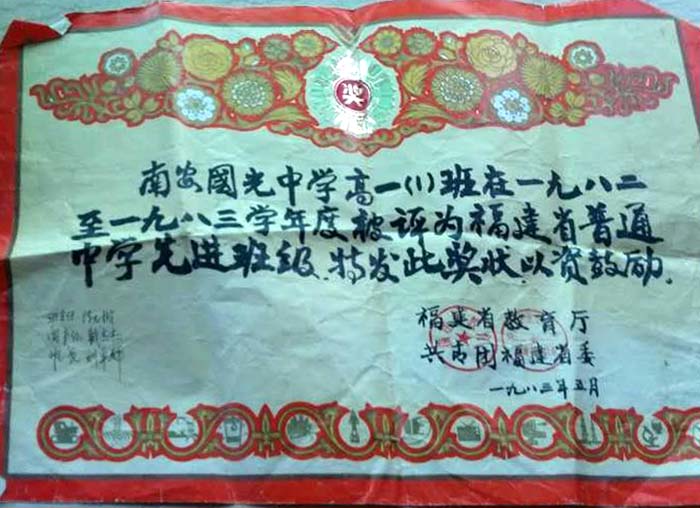 奖
南安國光中学高一(1)班在一九八二
至一九八三学年度被评为福建省普通
中学先进班级.特发此奖状.以资鼓励.
福建省教育厅
共青团福建省委
一九八三年五月
班主任